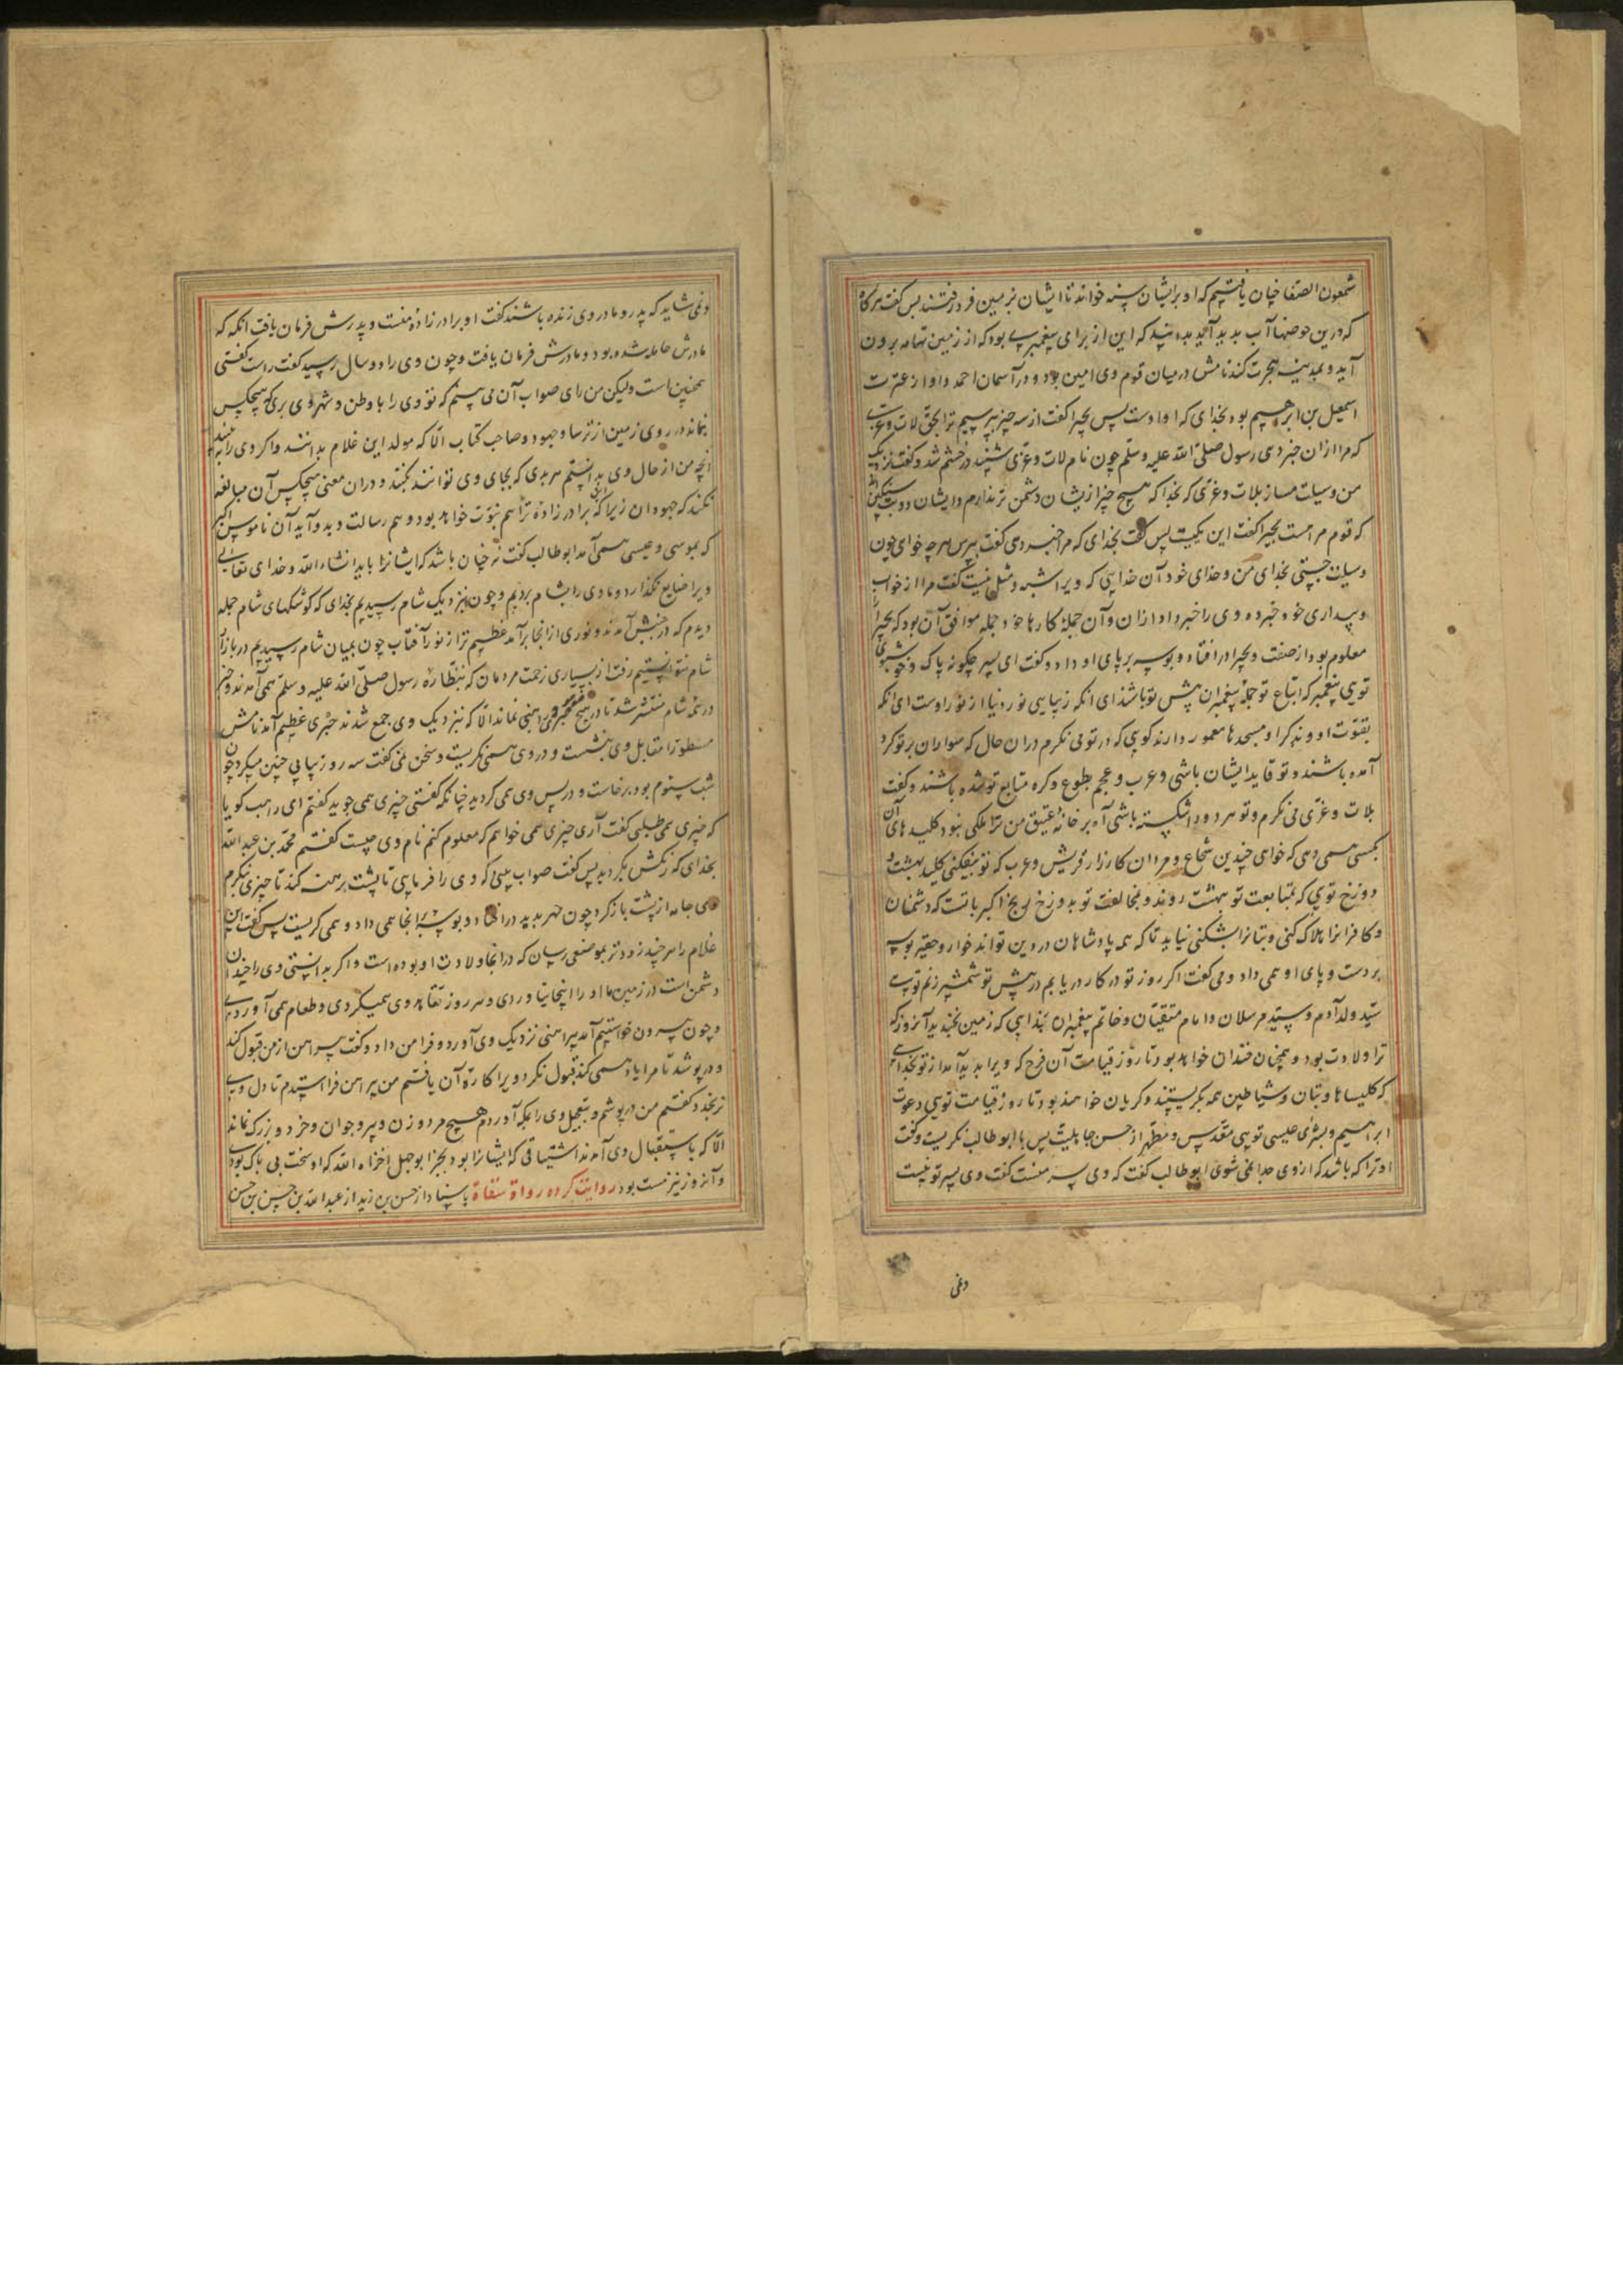 شمعون الصفا چنان یافتیم که او بر ایشان خواند تا ایشان بزمین فرو رفتند پس گفت هرگاه
که درین حوضها آب پدید آید بدانید که این از برای پیغمبری بود که از زمین تهامه برون
آید و بمدینه هجرت کند نامش در میان قوم وی امین بود و در آسمان احمد و او از عترت
اسمعیل بن ابرهیم بود بخدای که او اوست پس بحیرا گفت از سه چیز بپرسیم ترا بحق لات و عزی
که مرا از ان خبر دهی رسول صلی الله علیه وسلم چون نام لات و عزی شنید در خشم شد و گفت نزدیک
من وسیلت مساز بلات و عزی که بخدا که هیچ چیز از یشان دشمن تر ندارم و ایشان دو بت سنگین
که قوم مراست بحیرا گفت این یکیست پس گفت بخدای که مرا خبر دهی گفت بپرس هر چه خواهی چون
وسیلت جستی بخدای من و خدای خود آن خدایی که ویرا شبه و مثل نیست گفت مرا از خواب
و بیداری خود خبر ده وی را خبر داد از ان و آن جمله کارها خود جمله موافق آن بود که بحیرا را
معلوم بود از صفت بحیرا در افتاد و بوسه بر پای او داد و گفت ای پسر چگونه پاک و خوشبوی
تویی پیغمبر که اتباع تو جمله پیغمبران پیش تو باشند ای انکه زیبایی نور دنیا از نور اوست ای انکه
بقوت او و ذکر او مسجدها معمور دارند گویی که در تو می نگرم دران حال که سواران بر تو گرد
آمده باشند و تو قاید ایشان باشی و عرب و عجم بطوع و کره متابع تو شده باشند و گفت
بلات و عزی می نگرم و تو هر دو را شکسته باشی آه بر خانه عتیق من ترا ملکی نبود کلیدهای آن
بکسی همی دهی که خواهی چندین شجاع و مردان کارزار قریش و عرب که تو بیفکنی کلید بهشت و
دوزخ تویی که بمتابعت تو ببهشت روند و بمخالفت تو بدوزخ ذبح اکبر باتست که دشمنان
و کافرانرا هلاک کنی و بتانرا بشکنی نیاید تا که همه پادشاهان در دین تو آیند خوار و حقیر بوسه
بر دست و پای او همی داد و می گفت اگر روز تو در کار دریابم در پیش تو شمشیر زنم تویی
سید ولد آدم و سید مرسلان و امام متقیان و خاتم پیغمبران بخدایی که زمین بخندید آنروز که
ترا ولادت بود و همچنان خندان خواهد بود تا روز قیامت آن فرح که ویرا پدید آمد از تو بخدایی
که کلیساها و بتان و شیاطین همه بگریستند و گریان خواهند بود تا روز قیامت تویی دعوت
ابراهیم و بشری عیسی تویی مقدس و مطهر از جاهلیت پس با ابو طالب نگریست و گفت
او ترا که باشد که از وی جدا نمی شوی ابو طالب گفت که وی پسر منست گفت وی پسر تو نیست
ونمی
ونمی شاید که پدر و مادر وی زنده باشند گفت او برادر زاده منست و پدرش فرمان یافت انگه که
مادرش حامله شده بود و مادرش فرمان یافت و چون وی را دو سال رسید گفت راست گفتی
همچنین است ولیکن من رای صواب آن می بینم که تو وی را با وطن و شهر وی بری که هیچکس
نماند در روی زمین از ترسا و جهود و صاحب کتاب الا که مولد این غلام بدانند و اگر وی را ببینند
آنچه من از حال وی بدانستم هر بدی که بجای وی توانند بکنند و دران معنی هیچکس آن مبالغه
نکند که جهودان زیرا که این برادر زاده ترا هم نبوت خواهد بود و هم رسالت و بدو آید آن ناموس اکبر
که بموسی و عیسی همی آمد ابو طالب گفت نه چنان باشد که ایشانرا باید انشاء الله و خدای تعالی
ویرا ضایع نگذارد و ما وی را بشام بردیم و چون بنزدیک شام رسیدیم بخدای که کوشکهای شام جمله
دیدم که در جنبش آمدند و نوری از انجا برآمد عظیم تر از نور آفتاب چون بمیان شام رسیدیم در بازار
شام نتوانستیم رفت از بسیاری زحمت مردمان که بنظاره رسول صلی الله علیه وسلم همی آمدند و خبر
در همه شام منتشر شد تا در هیچ راهبی نماند الا که بنزدیک وی جمع شدند حبری عظیم آمد نامش
نسطورا مقابل وی بنشست و در وی همی نگریست و سخن نمی گفت سه روز پیاپی چنین میکرد چون
شب سیوم بود برخاست و در پس وی همی گردید چنانکه گفتی چیزی همی جوید گفتم ای راهب گویا
که چیزی همی طلبی گفت آری چیزی همی خواهم که معلوم کنم نام وی چیست گفتم محمد بن عبدالله
بخدای که رنگش بگردید پس گفت صواب بینی که وی را فرمایی تا پشت برهنه کند تا چیزی بنگرم
وی جامه از پشت باز کرد چون مهر بدید در افتاد و بوسه بر انجا همی داد و همی گریست پس گفت این
غلام را هر چند زودتر بموضعی رسان که در انجا ولادت او بوده است و اگر بدانستی وی را چندان
دشمن است در زمین ما او را اینجا نیاوردی و هر روز تعاهد وی همیکردی و طعام همی آوردی
و چون بیرون خواستیم آمد پیراهنی نزدیک وی آورد و فرا من داد و گفت پیراهن از من قبول کند
و درپوشد تا مرا یاد همی کند قبول نکرد و ویرا کاره آن یافتم من پیراهن فرا استدم تا دل وی
نرنجد و گفتم من درپوشم و بتعجیل وی را بمکه آوردم هیچ مرد و زن و پیر و جوان و خرد و بزرگ نماند
الا که باستقبال وی آمدند اشتیاقی که ایشانرا بود بجز ابو جهل اخزاه الله که او سخت بی باک بودی
و آنروز نیز مست بود روایت کرده رواة ثقاة باسناد از حسن بن زید از عبدالله بن حسن بن حسن